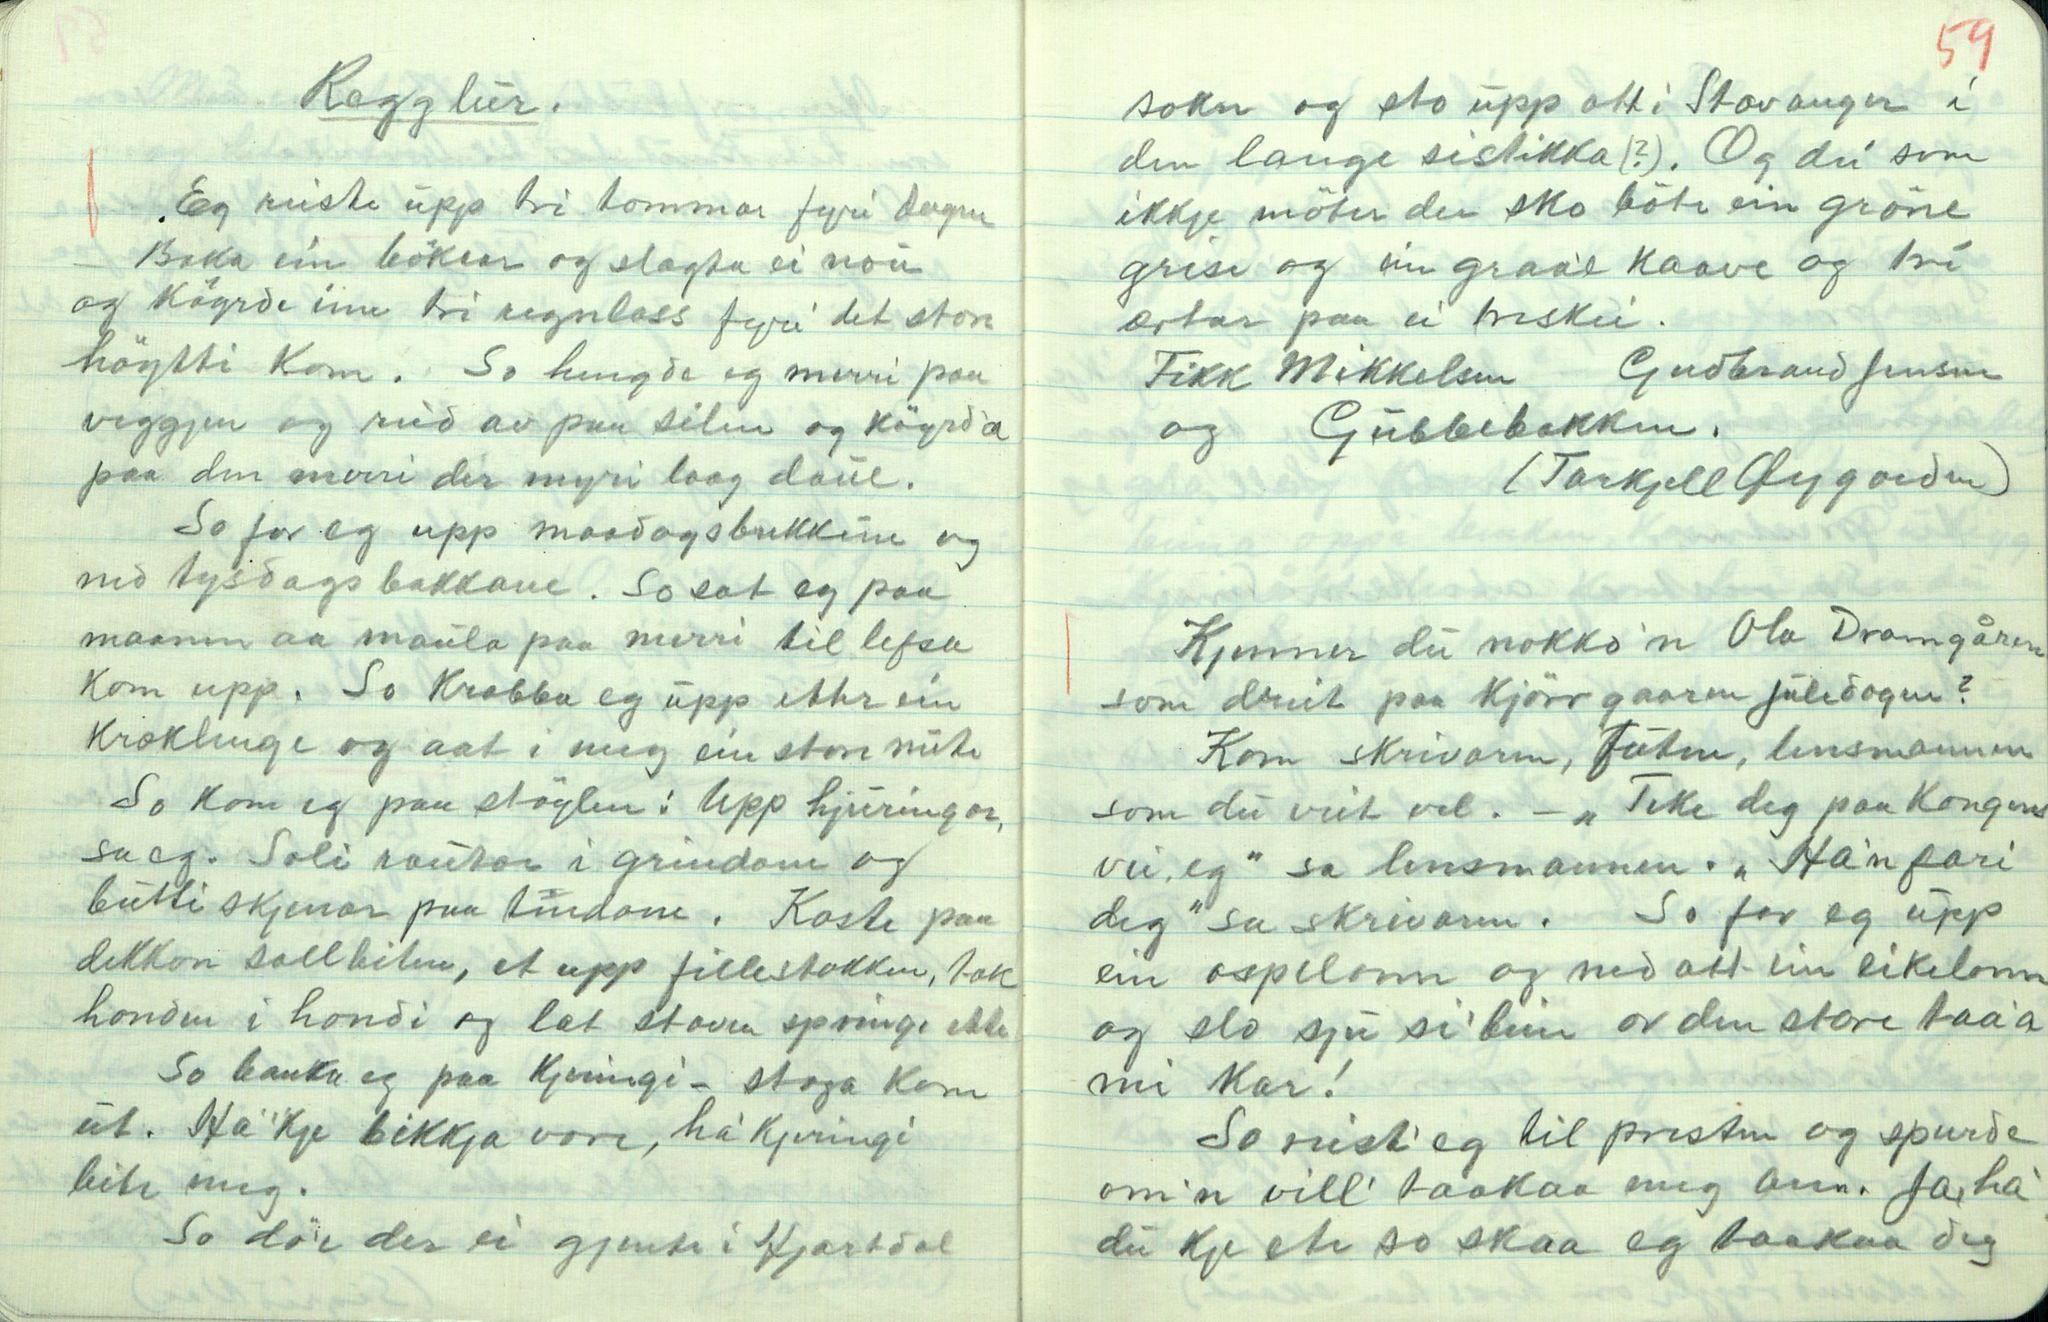 Regglur.
Eg reiste upp tri tommar fyri dagen
– Baka ein böksar og slagta ei nou
og köyrde inn tri regnlass fyri det store
höytti kom. So hengde eg merri paa
veggjen og reið av paa silen og köyrða
paa den merri der myri laag dau.
So for eg upp maadagsbrekkune og
neð tysðagsbakkane. So sat eg paa
maanen aa maula paa merri til lefsa
kom upp. So krabba eg upp etter ein
kroklenge og aat i meg ein store nute
So kom eg paa stöylen: Upp hjuringar,
sa eg. Soli rautar i grindane og
butti skjenar paa tindane. Kaste paa
dekkon sallbiten, et upp fillestakken, tak
honden i hondi og lat staven springe ette
So banka eg paa kjeringi – stoga kom
ut. Ha' kje bikkja vore, ha' kjeringi
bite meg.
So döe der ei gjente i Hjartdal
59
sokn og sto upp att i Stavanger i
den lange sistikka (?). Og du som
ikkje möter der sko böte ein gröne
grise og ein graae kaave og tri
ertar paa ei treskei.
Fikk Mikkelsen Gudbrand Jensen
og Gubbebakken.
(Tarkjell Øygarden)
Kjenner du nokko'n Ola Dramgåren
som dreit paa Kjörrgaaren juledagen?
Kom skrivaren, futen, lensmannen
som du veit vel. – „Teke deg paa Kongens
vei, eg" sa lensmannen. „Ha'n fari
deg" sa skrivaren. So for eg upp
ein aspelonn og ned att ein eikelonn
og slo sju si' bein av den store taa'a
mi kar!
So reist' eg til presten og spurde
om'n vill' taakaa meg ann. Ja, ha'
du kje ete so skaa eg taakaa deg